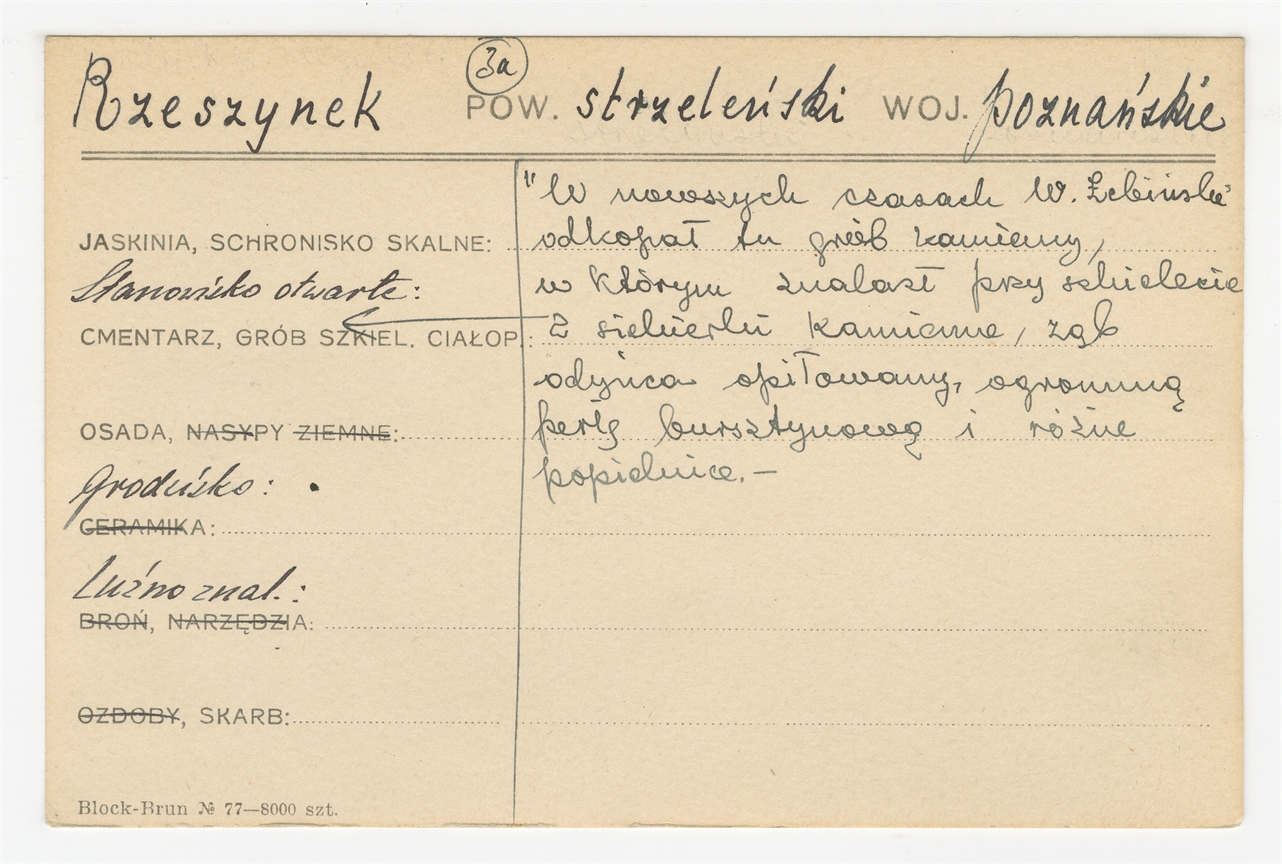 3a
Rzeszynek POW. strzeleński WOJ. poznańskie
"W nowszych czasach W. Łebiński
JASKINIA, SCHRONISKO SKALNE: odkopał tu grób kamienny,
Stanowisko otwarte: w którym znalazł przy szkielecie
CMENTARZ, GRÓB SZKIEL. CIAŁOP.: 2 siekierki kamienne, ząb
odyńca opiłowany, ogromną
OSADA, NASYPY ZIEMNE: perłę bursztynową i różne
popielnice.—
Grodzisko:
CERAMIKA:
Luźno znal.:
BROŃ, NARZĘDZIA:
OZDOBY, SKARB:
Block-Brun № 77—8000 szt.